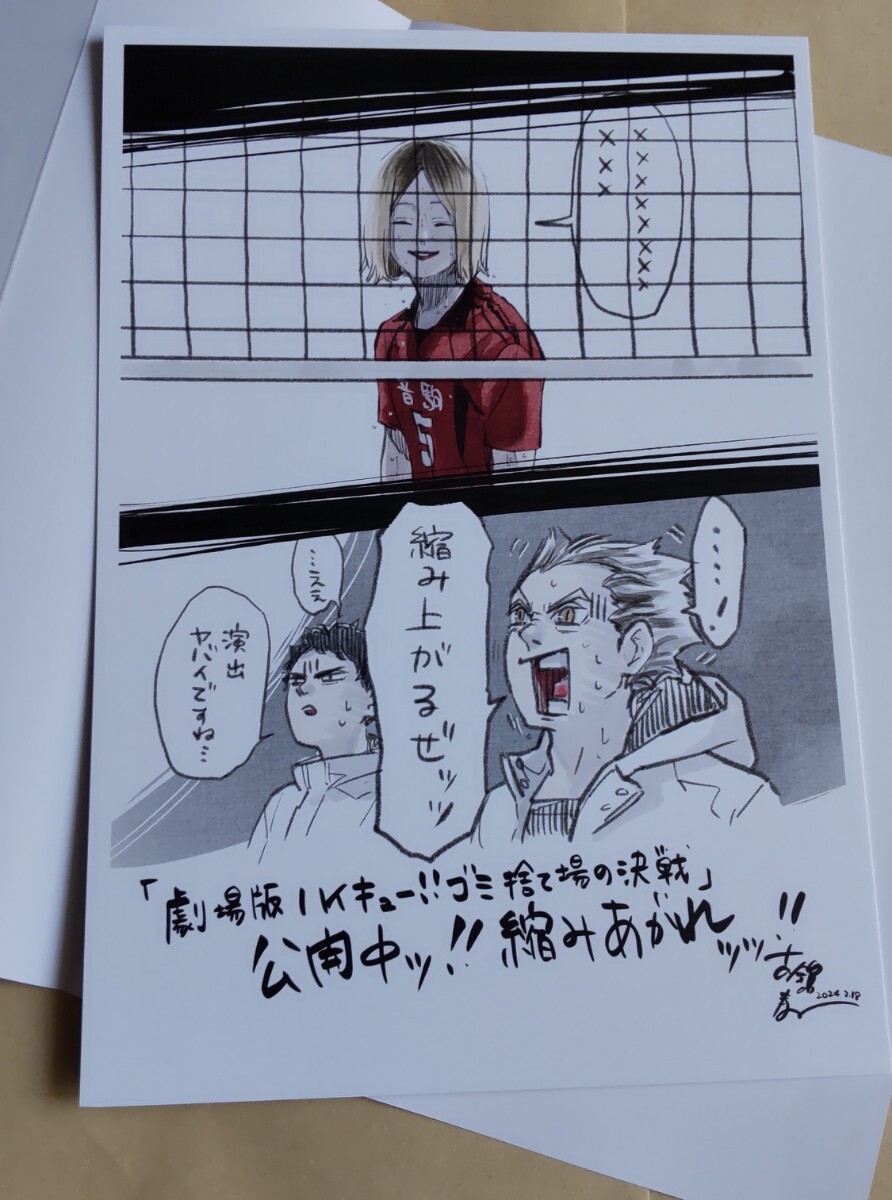 ×××××××
×××
音駒
5
……！
縮み上がるぜッッ
…ええ
演出
ヤバイですね…
「劇場版ハイキュー!!ゴミ捨て場の決戦」
公開中ッ!!縮みあがれッッ!!
古舘春一
2024 2.18